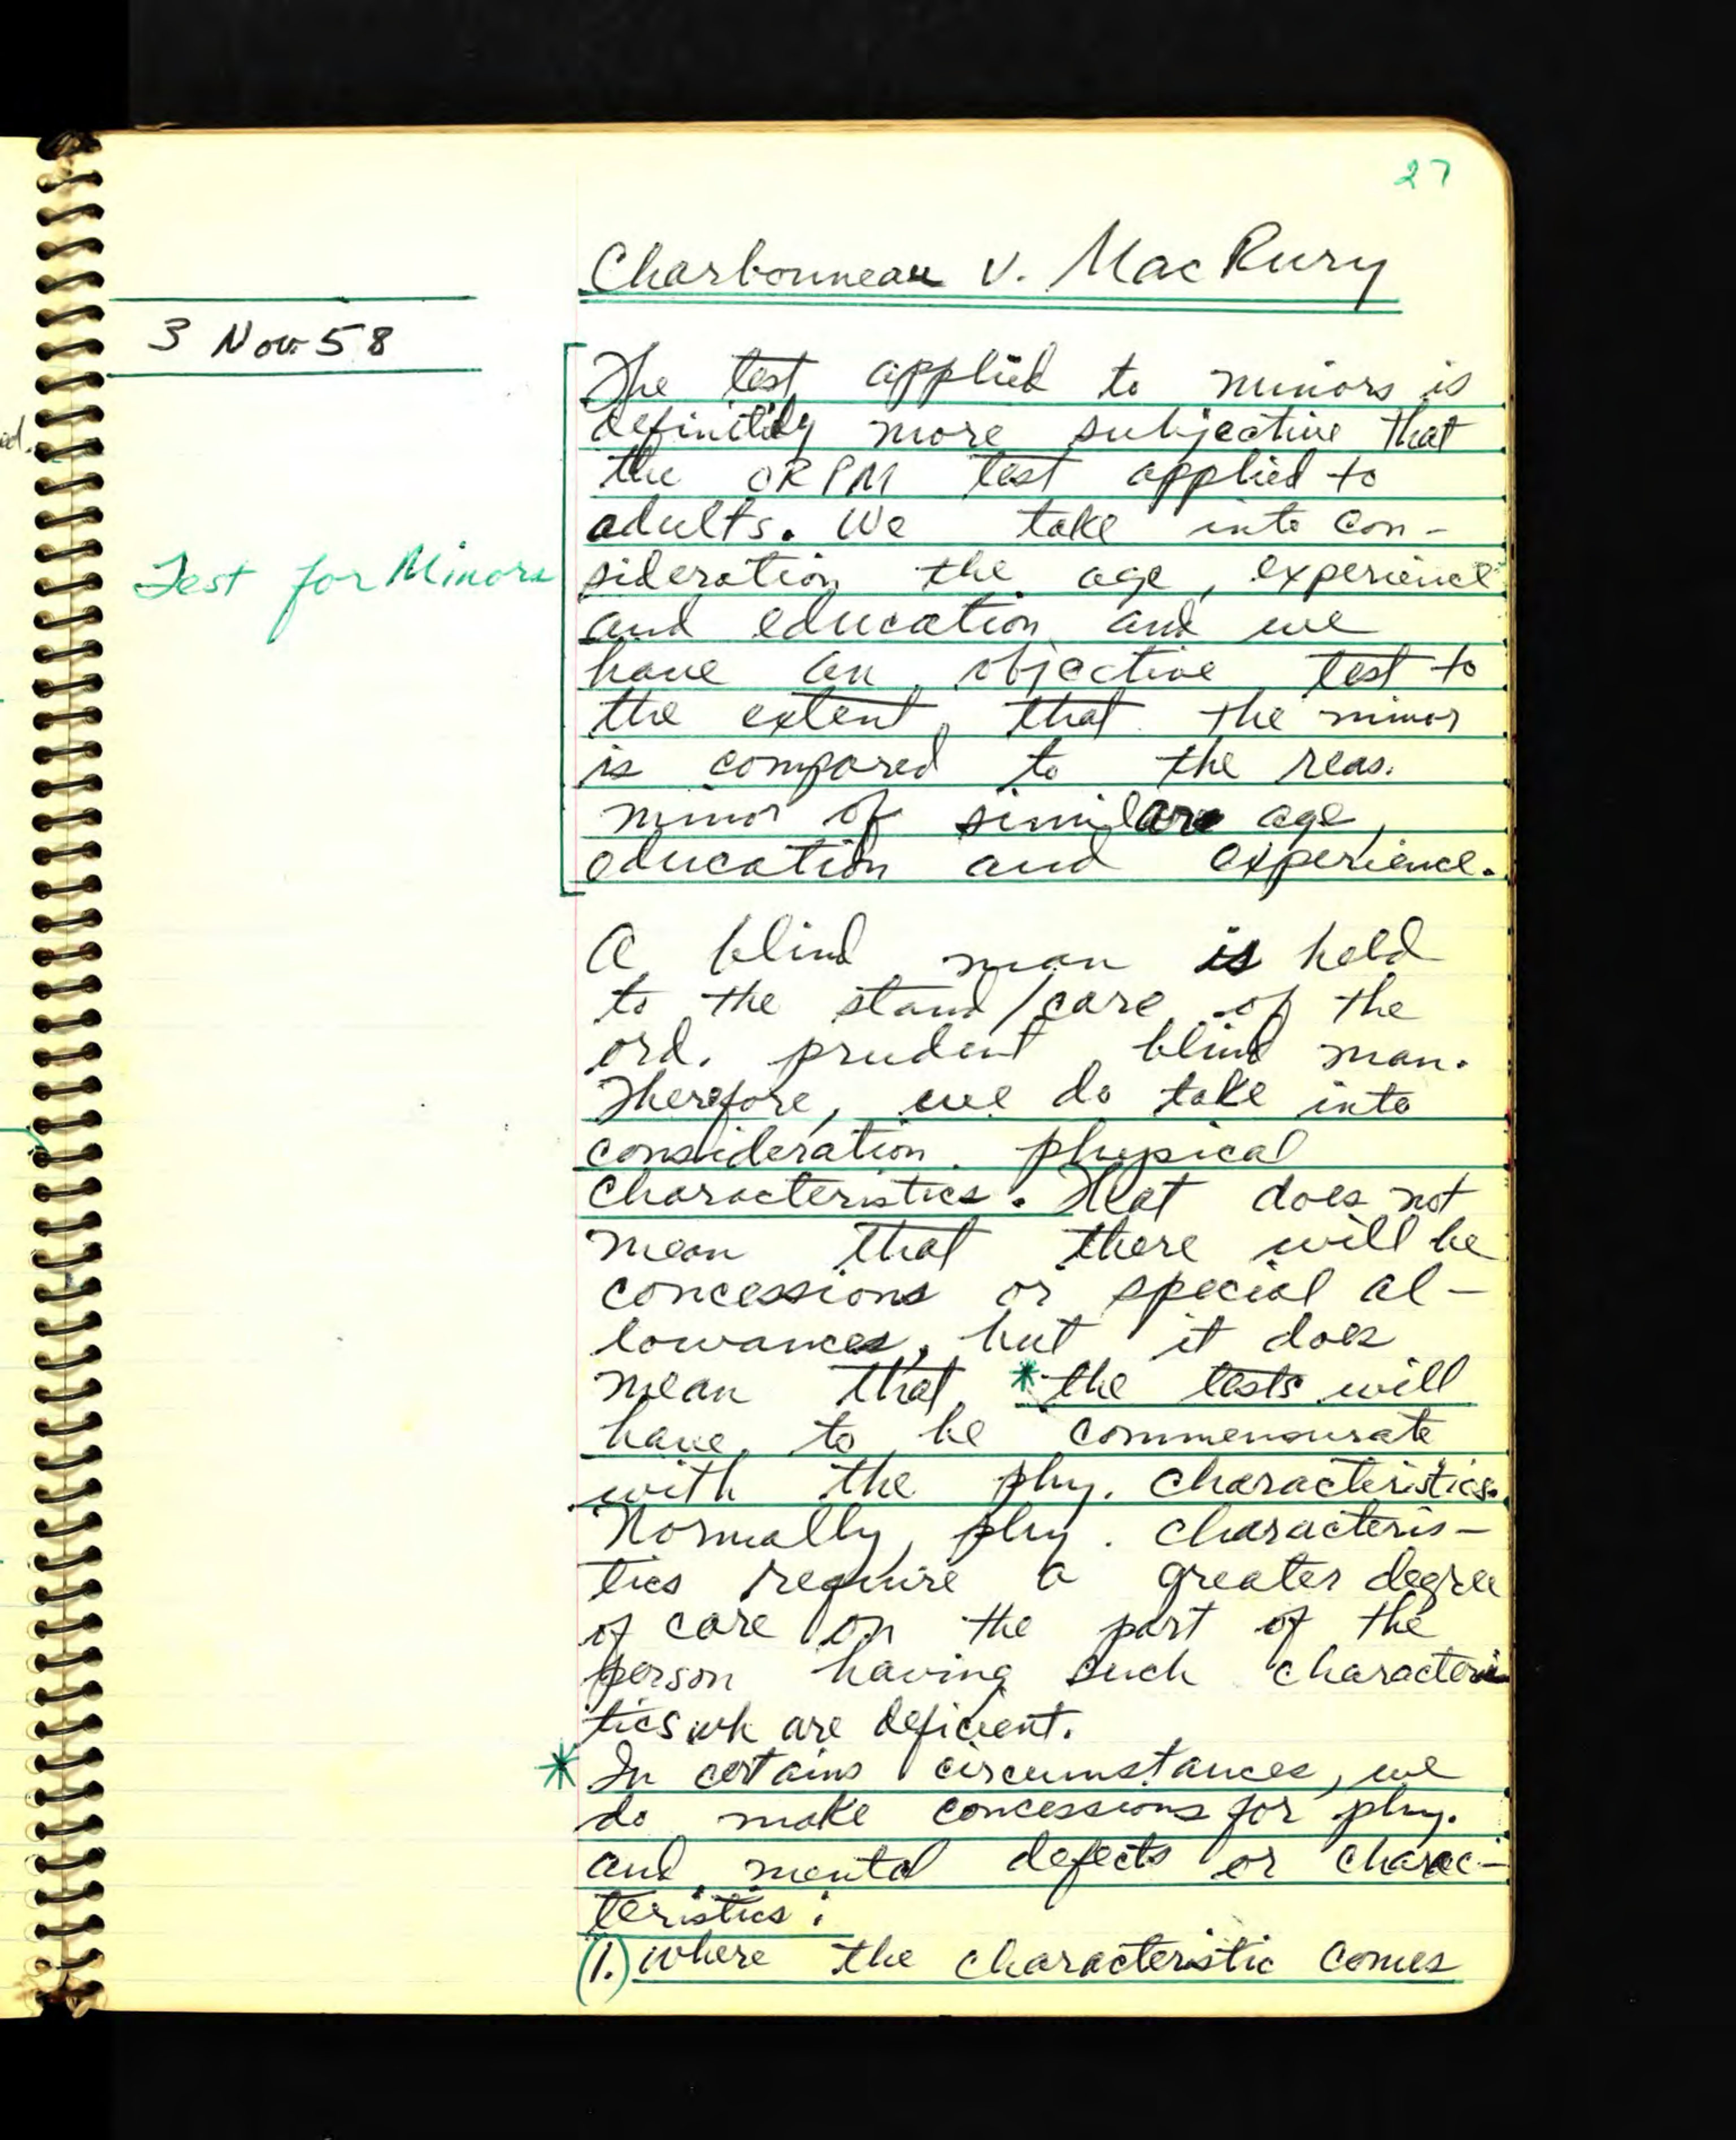 27
Charbonneau v. MacRury
3 Nov. 58
The test applied to minors is
definitily more subjective that
the ORPM test applied to
adults. We take into con-
Test for Minors
sideration the age, experience
and education and we
have an objective test to
the extent that the minor
is compared to the reas.
minor of similar age,
education and experience.
A blind man is held
to the stand/care of the
ord. prudent blind man.
Therefore, we do take into
consideration physical
characteristics. That does not
mean that there will be
concessions or special al-
lowances, but it does
mean that *the tests will
have to be commensurate
with the phy. characteristics.
Normally, phy. characteris-
tics require a greater degree
of care on the part of the
person having such characteris
tics wh are deficient.
* In certains circumstances, we
do make concessions for phy.
and mental defects or charac-
teristics:
(1.) where the characteristic comes